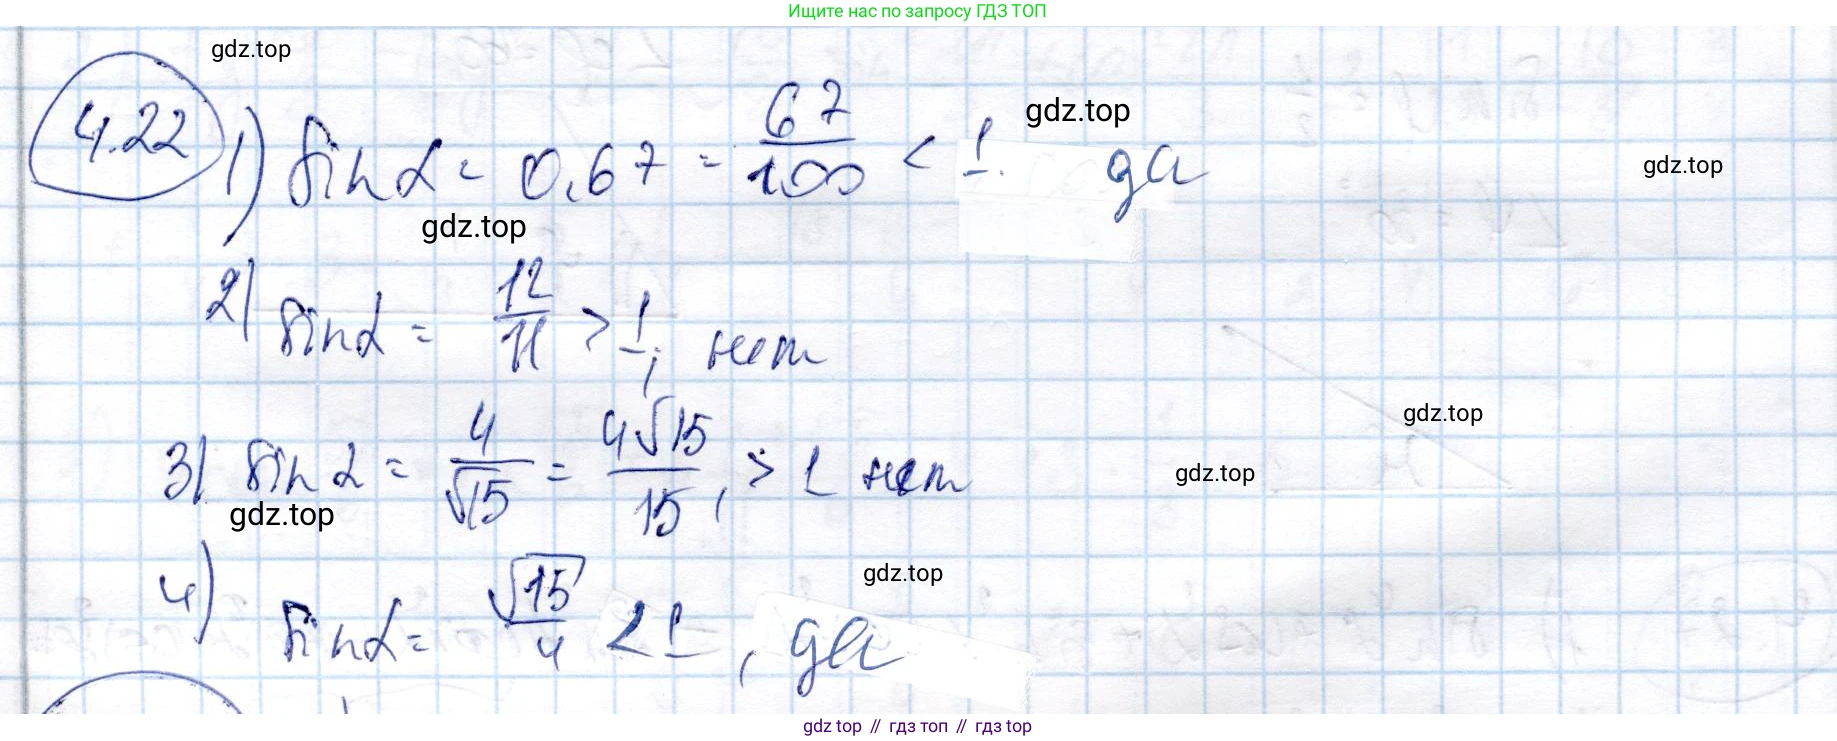 Ищите нас по запросу ГДЗ ТОП
gdz.top
4.22 1) sin α = 0,67 = 67/100 < 1 да
gdz.top
gdz.top
gdz.top
2) sin α = 12/11 > 1, нет
3) sin α = 4/√15 = 4√15/15, > 1 нет
gdz.top
gdz.top
gdz.top
4) sin α = √15/4 < 1, да
gdz.top
gdz top // гдз топ // гдз top